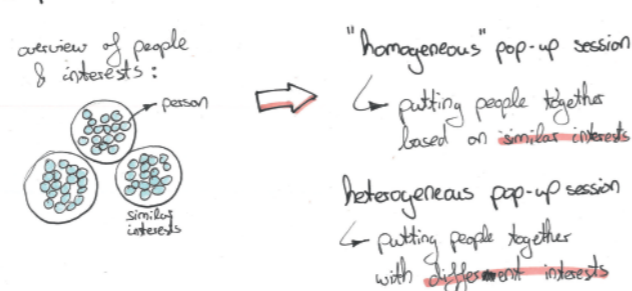 overview of people
& interests:
person
similar
interests
"homogeneous" pop-up session
putting people together
based on similar interests
heterogeneous pop-up session
putting people together
with different interests